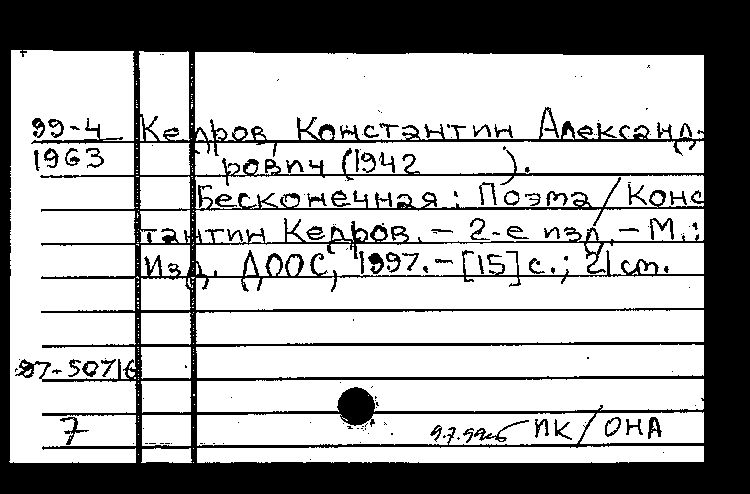 99-4 Кедров, Константин Александ-
1963 рович (1942 ).
Бесконечная: Поэма / Конс
тантин Кедров. – 2-е изд. – М.:
Изд. ДООС, 1997. – [15] с.; 21 cm.
97-50716
7 ПК/ОНА